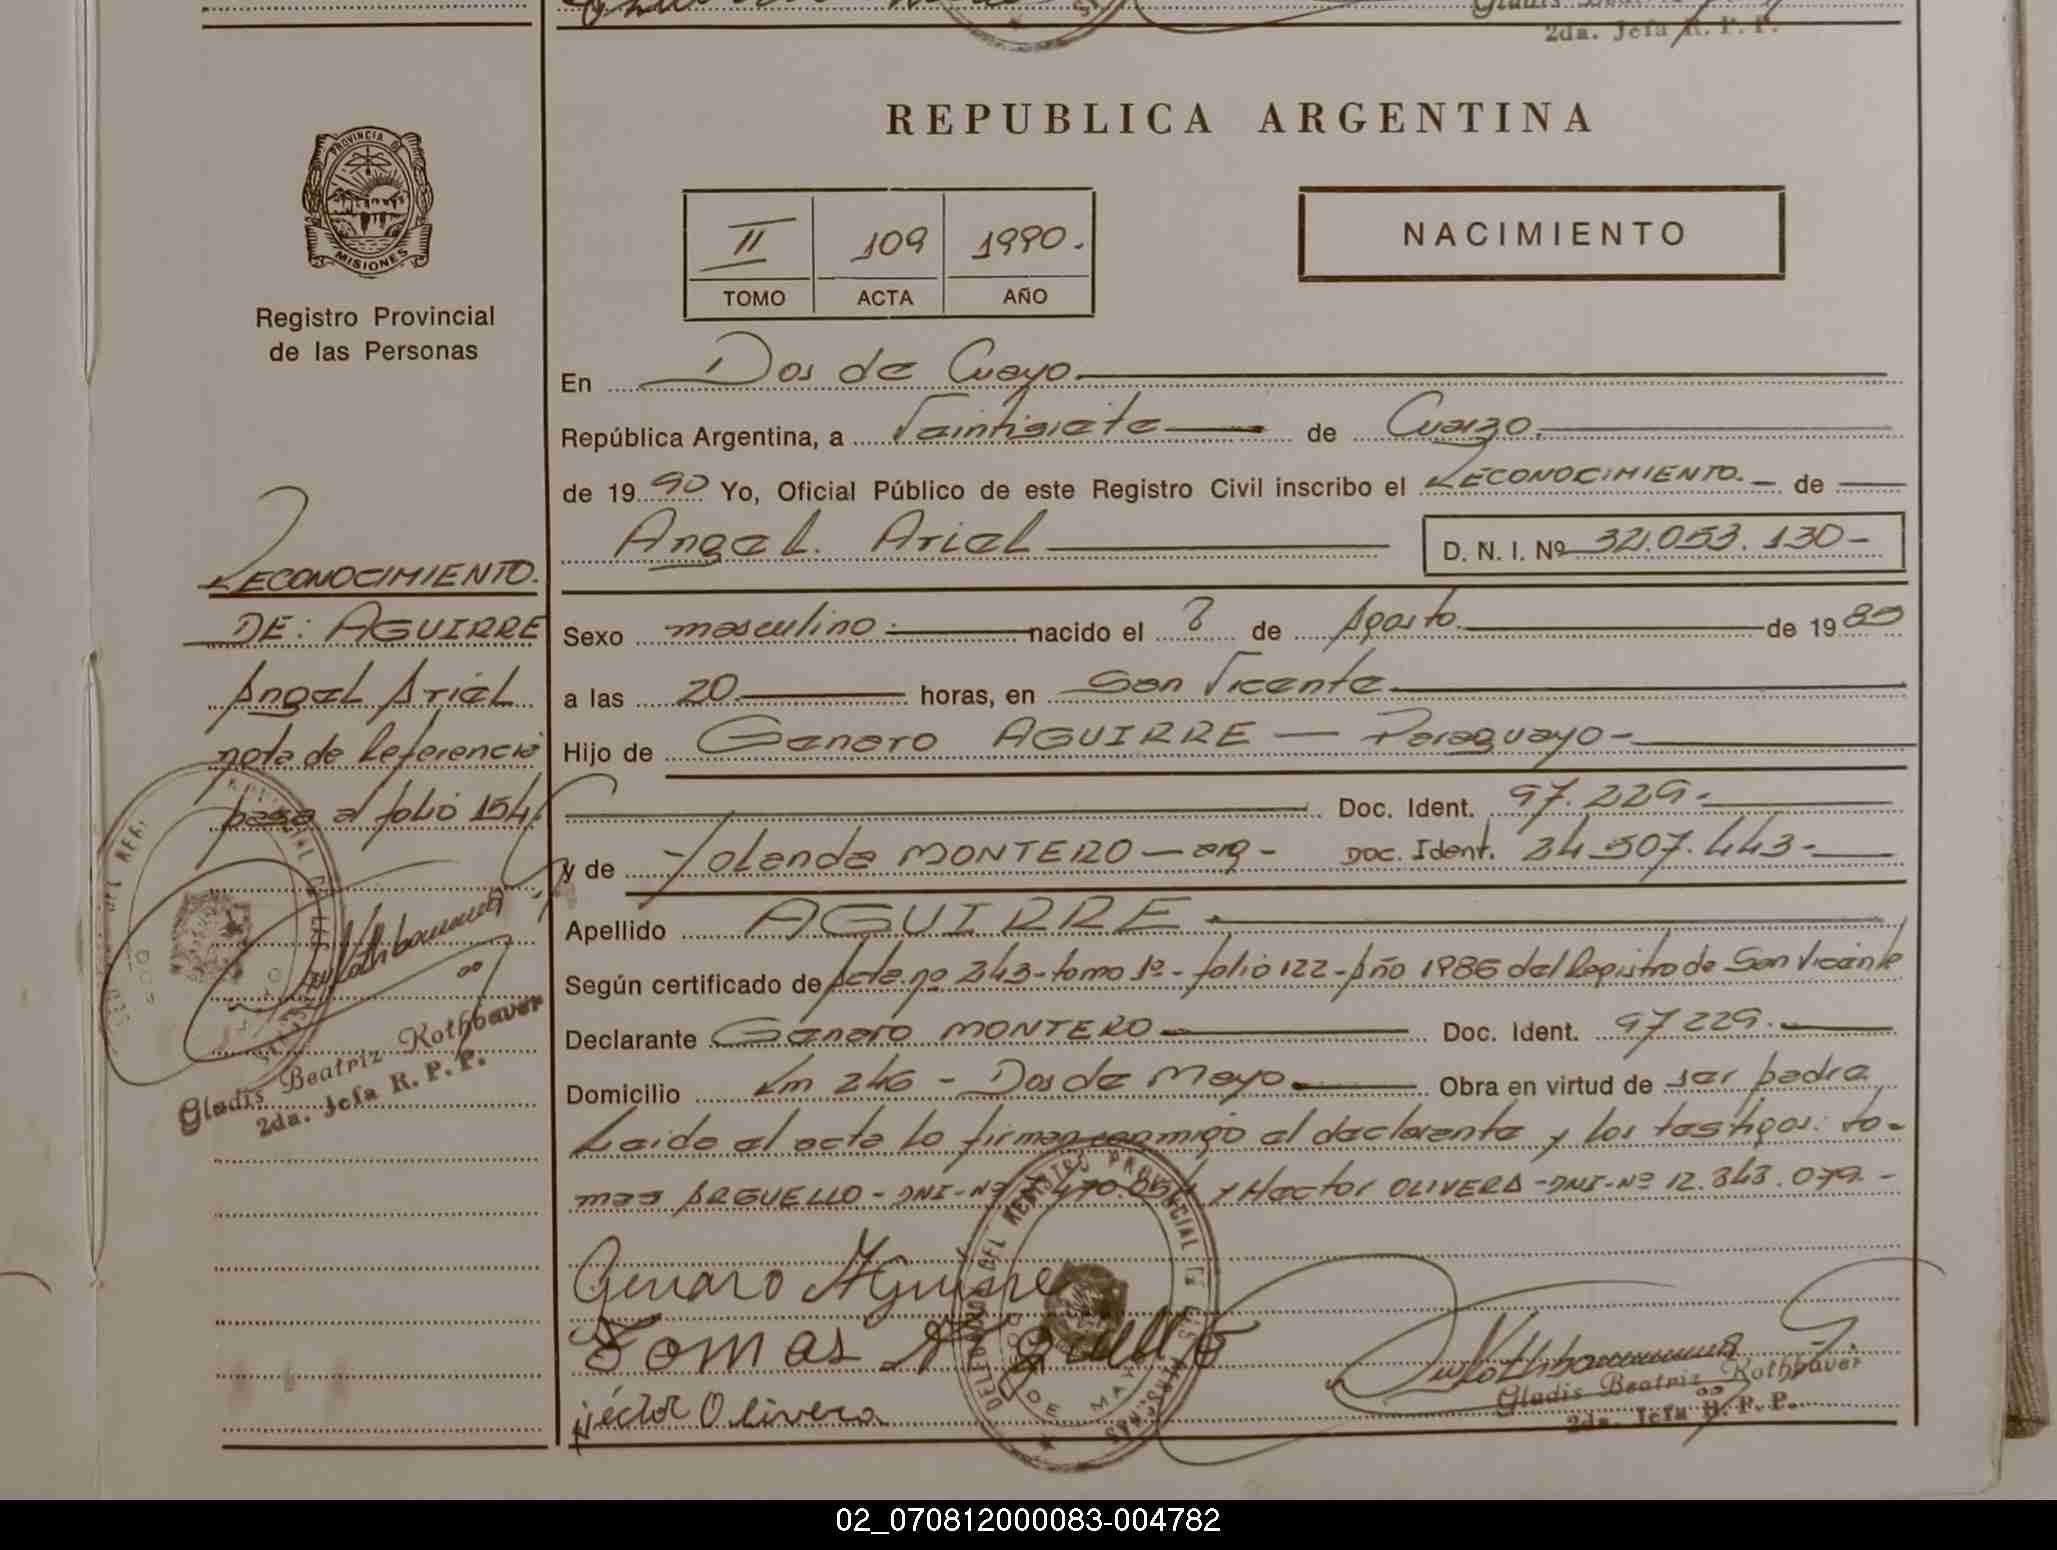 2da. Jefa R. P. P.
REPUBLICA ARGENTINA
PROVINCIA DE
MISIONES
Registro Provincial
de las Personas
II 109 1990.
TOMO ACTA AÑO
NACIMIENTO
En Dos de
República Argentina, a Veintisiete de
de 19 90 Yo, Oficial Público de este Registro Civil inscribo el RECONOCIMIENTO. de
Angel Ariel D. N. I. Nº 32.053.130-
RECONOCIMIENTO.
DE: AGUIRRE
Angel Ariel
nota de Referencia
pasa al folio 154
Gladis Beatriz Rothbauer
2da. Jefa R. P. P.
Sexo masculino. nacido el de Agosto. de 19
a las 20 horas, en San Vicente
Hijo de Genaro AGUIRRE — Paraguayo-
Doc. Ident. 97.229.
y de Yolanda MONTERO — arg- Doc. Ident. 24.507.443-
Apellido AGUIRRE.
Según certificado de Acta. nº 243- tomo 1º- folio 122- Año 1986 del Registro de San Vicente
Declarante Genaro MONTERO Doc. Ident. 97229.
Domicilio Km 246 - Dos de Mayo. Obra en virtud de ser padre
Leida el acta lo firman conmigo el declarante y los testigos: to-
mas ARGUELLO- DNI-Nº y Hector OLIVERA-DNI-Nº 12.343.079.-
Genaro Aguirre
Tomas Arguello
Héctor Olivera
DELEGACION DEL REGISTRO PROVINCIAL DE LAS PERSONAS
DOS DE MAYO
Gladis Beatriz Rothbauer
2da. Jefa R. P. P.
02_070812000083-004782